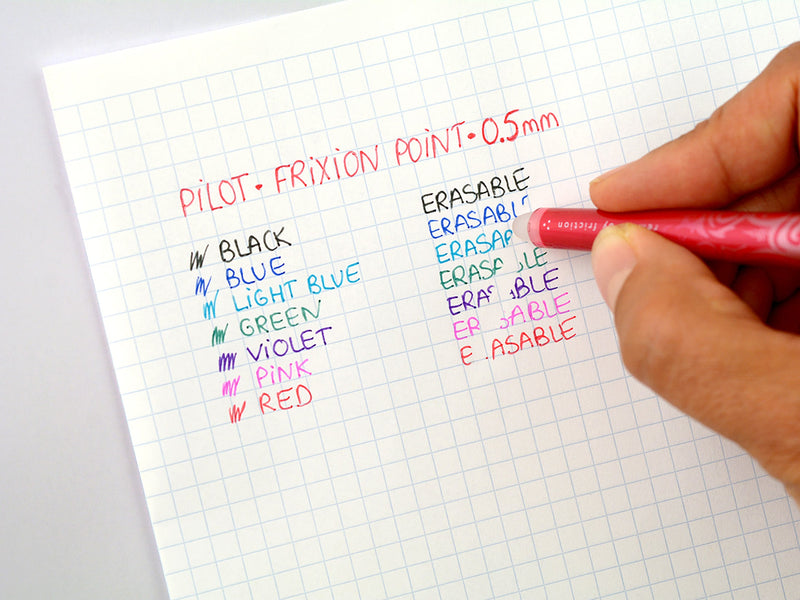 PiLOT • FRiXiON POiNT • 0.5mm
BLACK
BLUE
LiGHT BLUE
GREEN
ViOLET
PiNK
RED
ERASABLE
ERASABL
ERASA
ERASA LE
ERA BLE
ER SABLE
E ASABLE
by friction